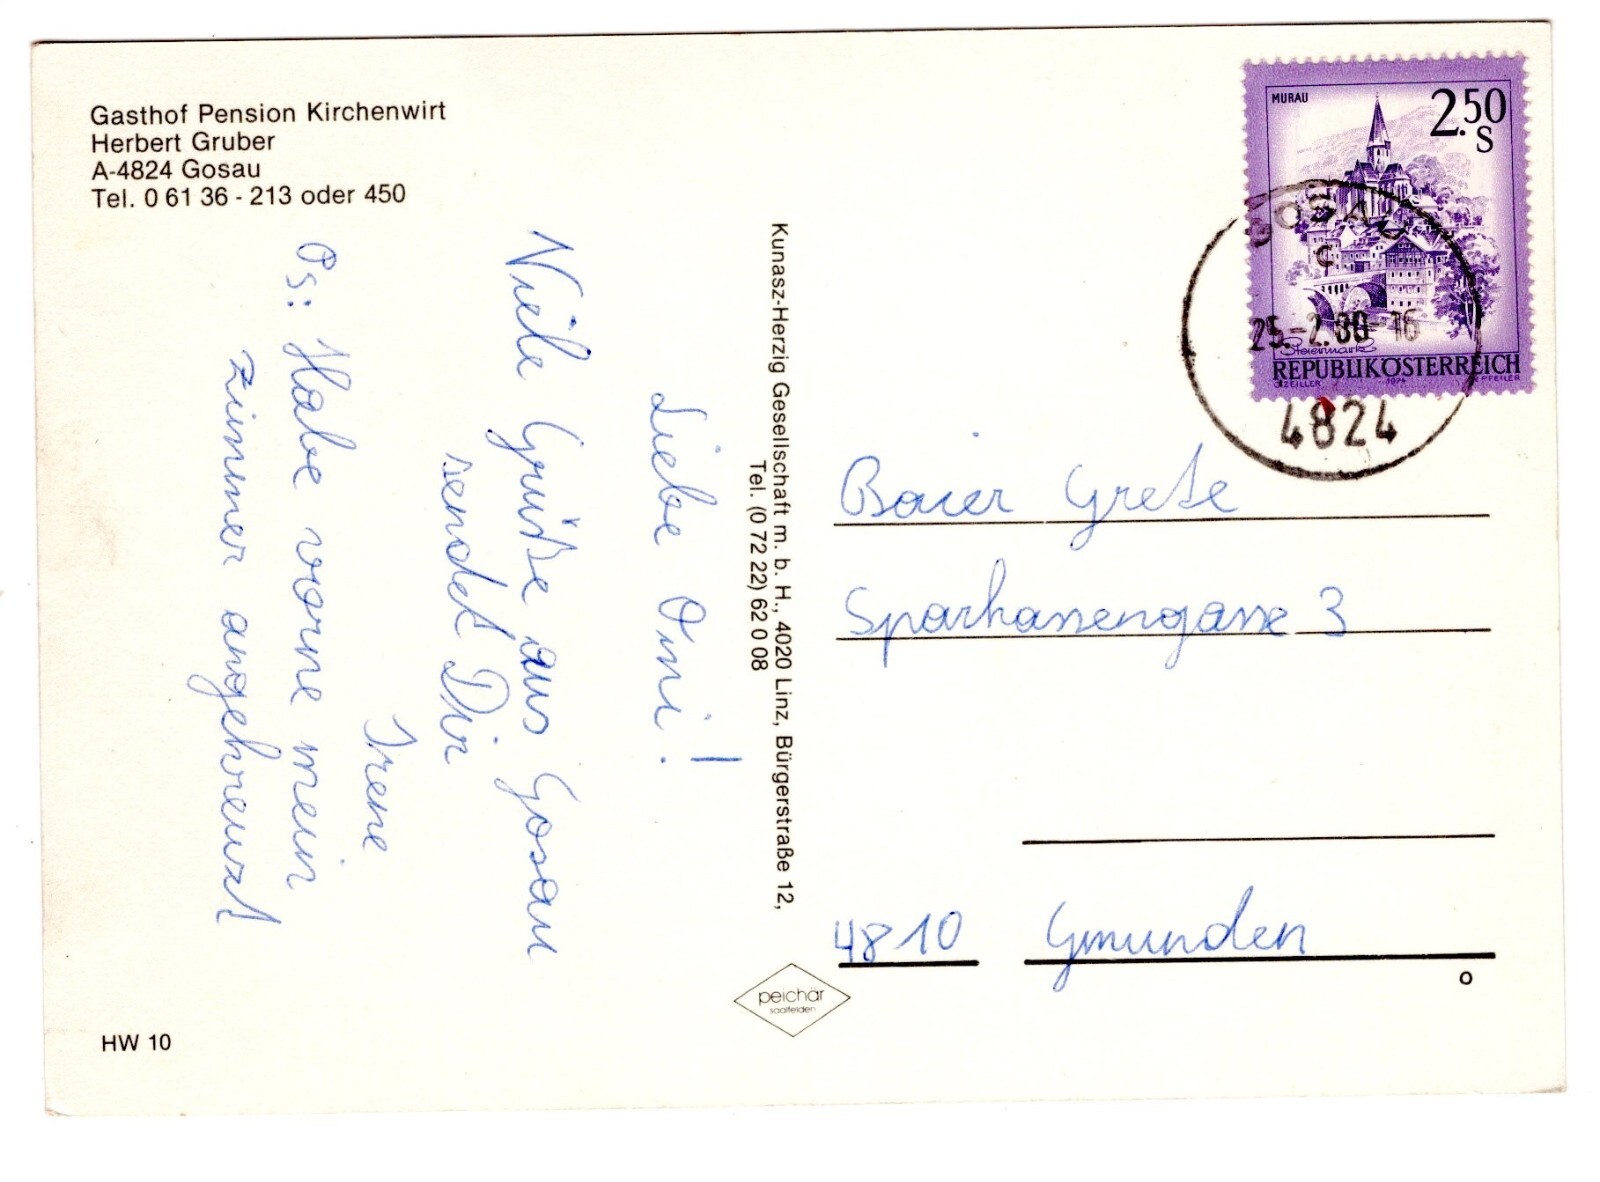 Gasthof Pension Kirchenwirt
Herbert Gruber
A-4824 Gosau
Tel. 0 61 36 - 213 oder 450
Liebe Omi!
Viele Grüße aus Gosau
sendet Dir
Irene
Ps: Habe vorne mein
Zimmer angekreuzt
HW 10
Kunasz-Herzig Gesellschaft m. b. H., 4020 Linz, Bürgerstraße 12,
Tel. (0 72 22) 62 0 08
peichär
saalfelden
MURAU
2.50
S
Steiermark
REPUBLIK ÖSTERREICH
GOSAU
c
25.-2.80-16
4824
Baier Grete
Sparkassengasse 3
4810 Gmunden
o